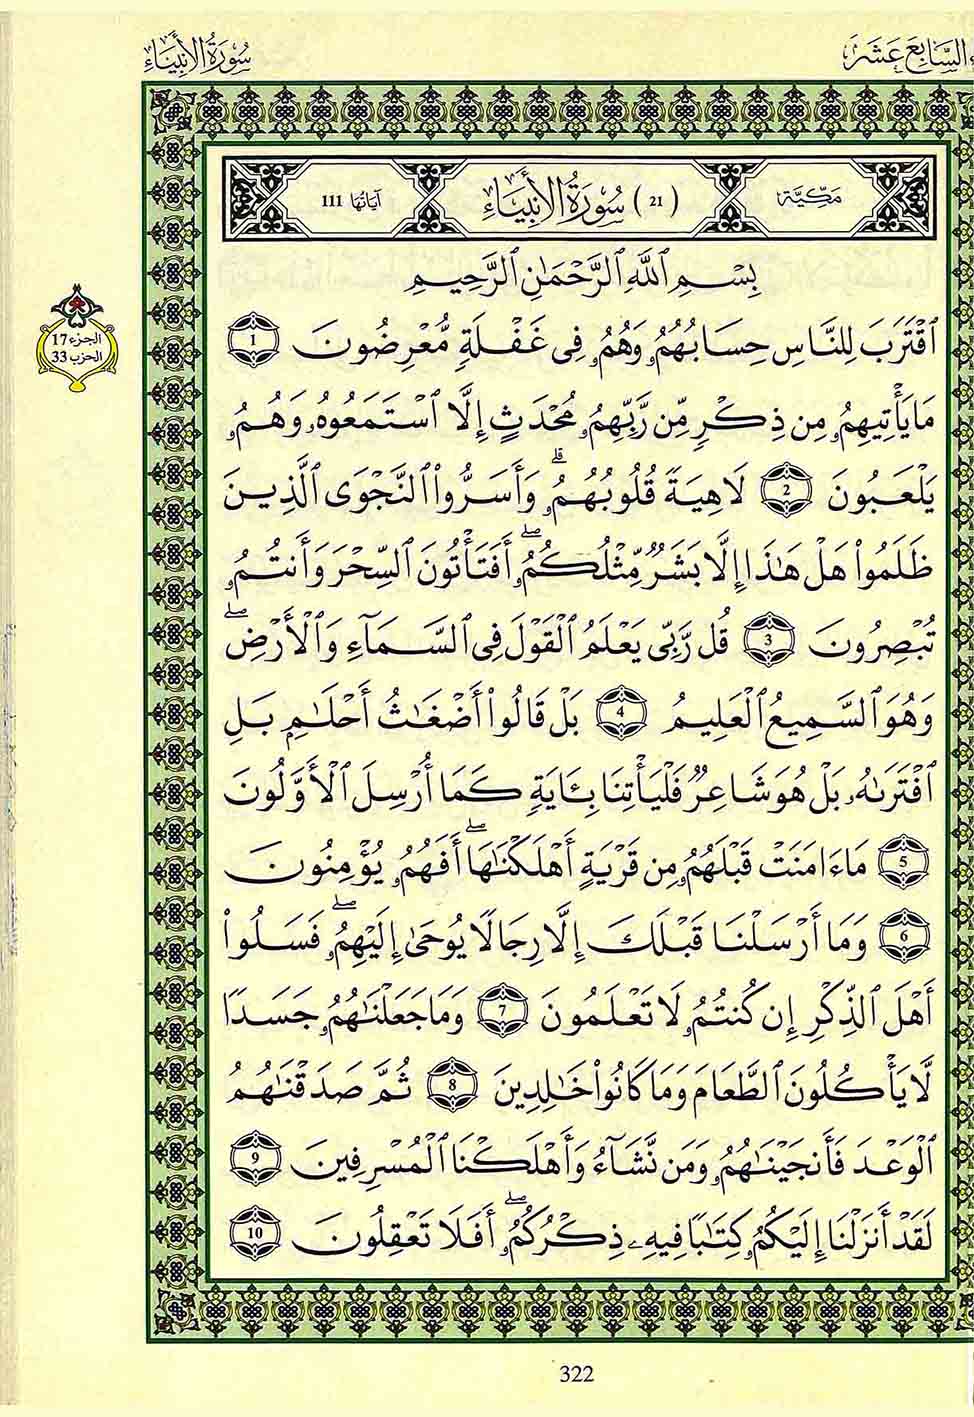 ءُ السَّابِعَ عَشَرَ
سُورَةُ الأَنبِيَاءِ
مَكِّيَّة
(21) سُورَةُ الأَنبِيَاءِ
آيَاتُهَا 111
بِسْمِ اِ۬للَّهِ اِ۬لرَّحْمَٰنِ اِ۬لرَّحِيمِ
اَ۪قْتَرَبَ لِلنَّاسِ حِسَابُهُمُۥ وَهُمُۥ فِى غَفْلَةٍ مُّعْرِضُونَ 1
مَا يَأْتِيهِمُۥ مِن ذِكْرٍ مِّن رَّبِّهِمُۥ مُحْدَثٍ إِلَّا اَ۪سْتَمَعُوهُۥ وَهُمُۥ
يَلْعَبُونَ 2 لَاهِيَةً قُلُوبُهُمُۥۗ وَأَسَرُّواْ اُ۬لنَّجْوَى اَ۬لَّذِينَ
ظَلَمُواْ هَلْ هَٰذَا إِلَّا بَشَرٌ مِّثْلُكُمُۥۖ أَفَتَأْتُونَ اَ۬لسِّحْرَ وَأَنتُمُۥ
تُبْصِرُونَ 3 قُل رَّبِّى يَعْلَمُ اُ۬لْقَوْلَ فِى اِ۬لسَّمَآءِ وَالْأَرْضِۖ
وَهُوَ اَ۬لسَّمِيعُ اُ۬لْعَلِيمُ 4 بَلْ قَالُواْ أَضْغَٰثُ أَحْلَٰمٍ بَلِ
اِ۪فْتَرَىٰهُۥ بَلْ هُوَ شَاعِرٌ فَلْيَأْتِنَا بِـَٔايَةٍ كَمَا أُرْسِلَ اَ۬لْأَوَّلُونَ
5 مَا ءَامَنَتْ قَبْلَهُمُۥ مِن قَرْيَةٍ أَهْلَكْنَٰهَاۖ أَفَهُمُۥ يُؤْمِنُونَ
6 وَمَا أَرْسَلْنَا قَبْلَكَ إِلَّا رِجَالًا يُوحَىٰ إِلَيْهِمُۥۖ فَسَلُواْ
أَهْلَ اَ۬لذِّكْرِ إِن كُنتُمُۥ لَا تَعْلَمُونَ 7 وَمَا جَعَلْنَٰهُمُۥ جَسَدًا
لَّا يَأْكُلُونَ اَ۬لطَّعَامَ وَمَا كَانُواْ خَٰلِدِينَ 8 ثُمَّ صَدَقْنَٰهُمُ
اُ۬لْوَعْدَ فَأَنجَيْنَٰهُمُۥ وَمَن نَّشَآءُ وَأَهْلَكْنَا اَ۬لْمُسْرِفِينَ 9
لَقَدْ أَنزَلْنَا إِلَيْكُمُۥ كِتَٰبًا فِيهِۦ ذِكْرُكُمُۥۖ أَفَلَا تَعْقِلُونَ 10
الجزء 17
الحزب 33
322